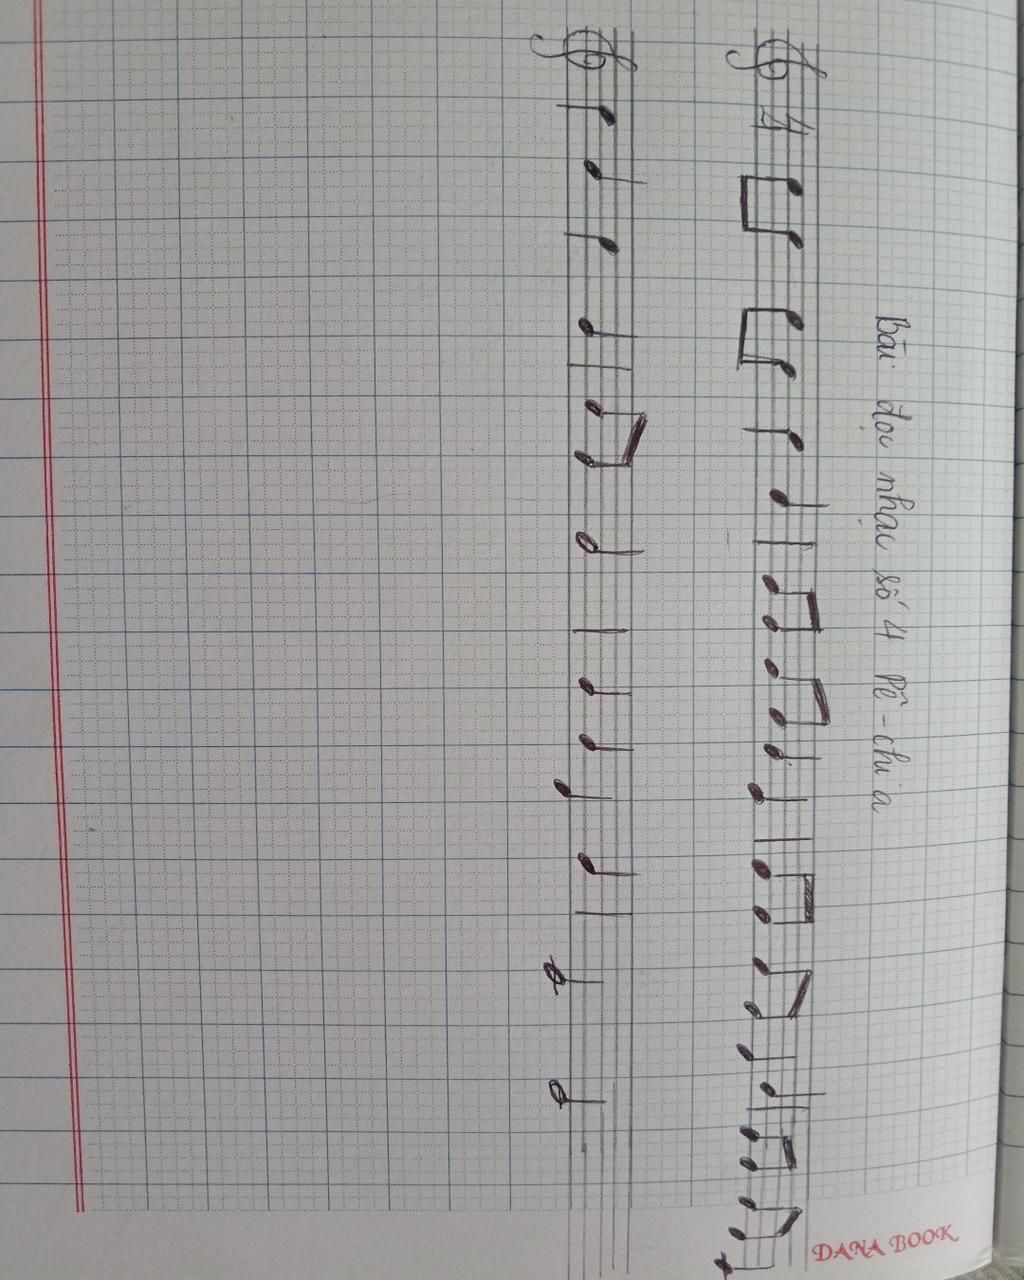 Bài đọc nhạc số 4 Pê-chi a
4
4
DANA BOOK